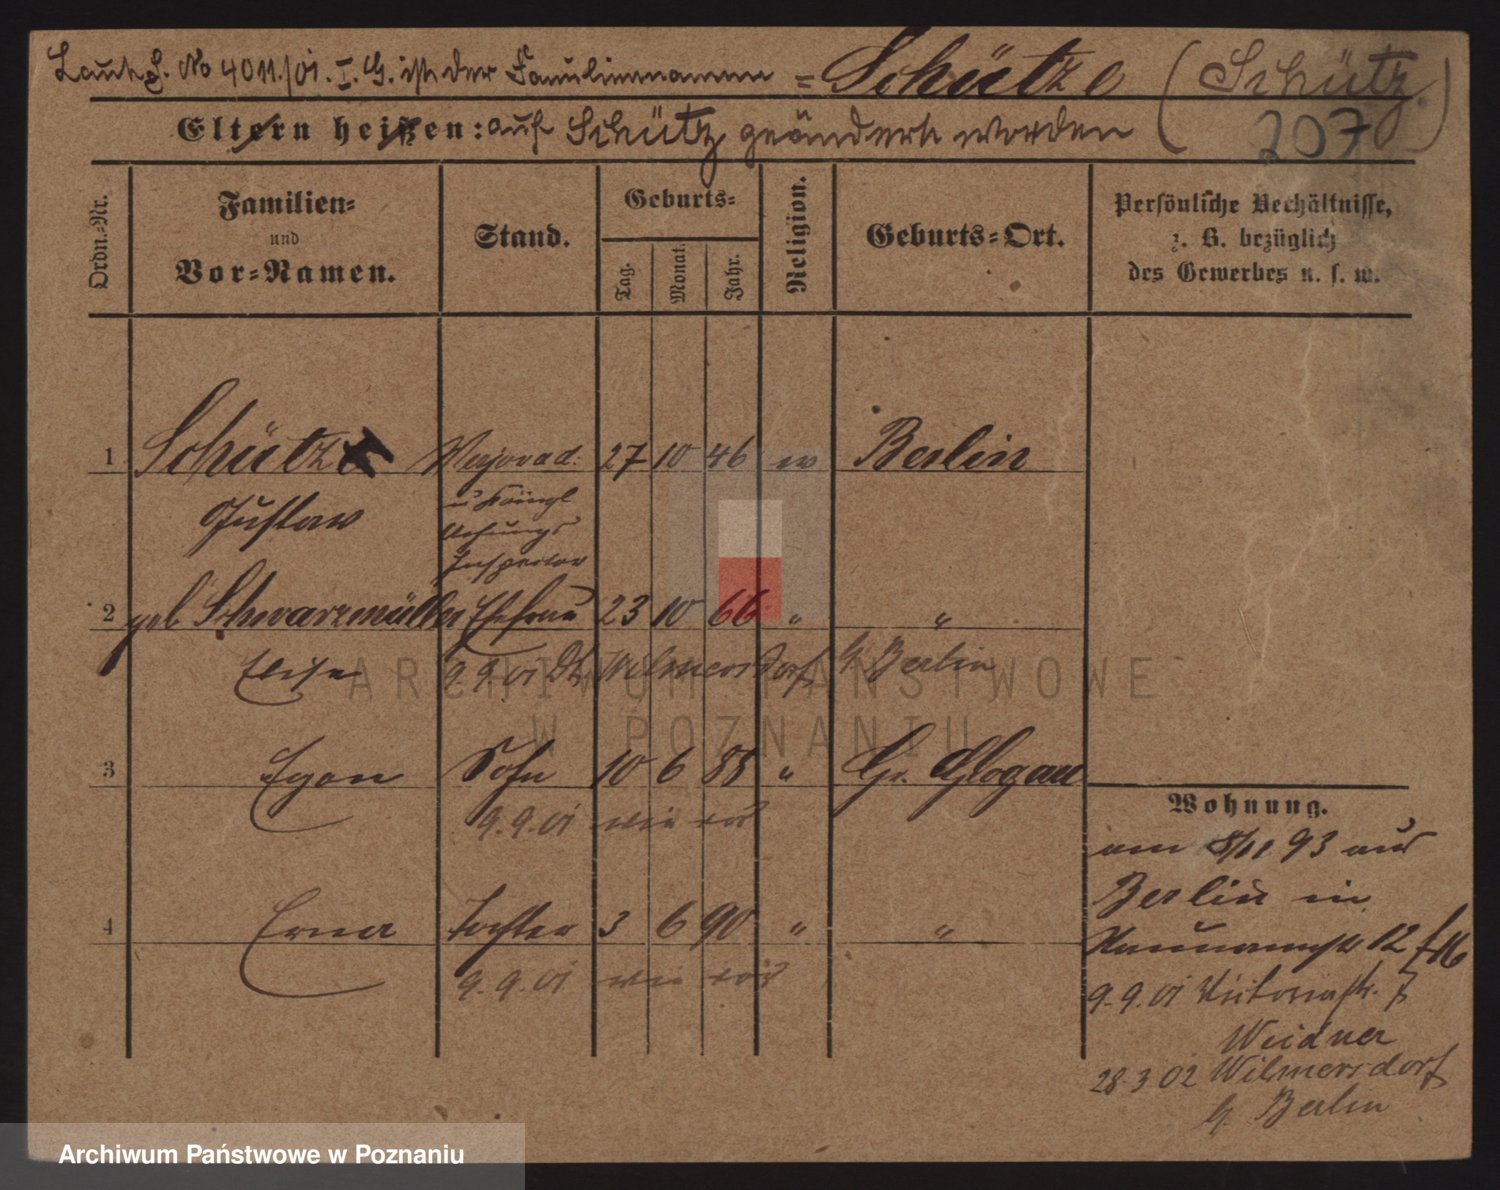 Laut J. No 4011/01. I. G. ist der Familienname = Schütze (Schütz)
Eltern heißen: auf Schütz geändert worden
207
Ordn.=Nr.
Familien=
und
Vor=Namen.
Stand.
Geburts=
Tag.
Monat.
Jahr.
Religion.
Geburts=Ort.
Persönliche Verhältnisse,
z. B. bezüglich
des Gewerbes u. s. w.
1 Schütz 27 10 46 ev Berlin
Gustav
u Königl
Inspector
2 geb Schwarzmüller Ehefrau 23 10 66 " "
Elise 9.9.01 Dt. Wilmersdorf b Berlin
3 Egon Sohn 10 6 88 " Gr. Glogau
9.9.01 wie vor
4 Erna Tochter 3 6 90 " "
9.9.01 wie vor
Wohnung.
am 93 aus
Berlin in
Naumannstr 12
9.9.01 Victoriastr. 7
Weidner
28.3.02 Wilmersdorf
b. Berlin
ARCHIWUM PAŃSTWOWE
W POZNANIU
Archiwum Państwowe w Poznaniu